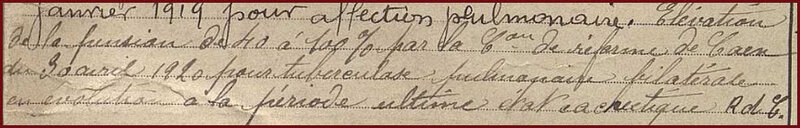 janvier 1919 pour affection pulmonaire. Elévation
de la pension de 40 à 100% par la Con de réforme de Caen
du 30 avril 1920 pour tuberculose pulmonaire bilatérale
en évolution à la période ultime état cachectique R.d.C.